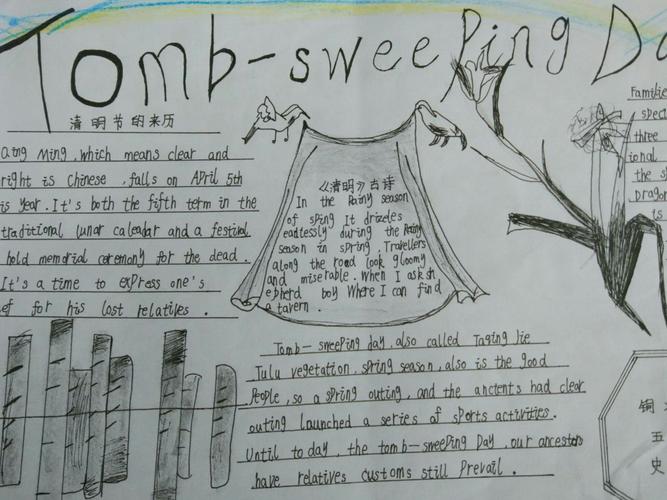 Tomb-sweeping Da
清明节的来历
Qing Ming, which means clear and
right is Chinese, falls on April 5th
is year. It's both the fifth term in the
traditional lunar caleadar and a festival
hold memorial ceremony for the dead.
It's a time to express one's
ef for his lost relatives.
《清明》古诗
In the Rainy season
of sping It drizeles
eadtlessly during the Rainy
season in spring. Travellers
along the road look gloomy
and miserable. When I ask sh
epherd boy Where I can find
a tavern.
Familie
spect
three
ional
the s
Dragon
is
Tomb-sweeping day, also called Taqing Jie
Tulu vegetation, spring season, also is the good
People, so a spring outing, and the ancients had clear
outing launched a series of sports activities.
Until today, the tomb-sweeping Day, our ancestors
have relatives customs still Prevail.
铜
五
史